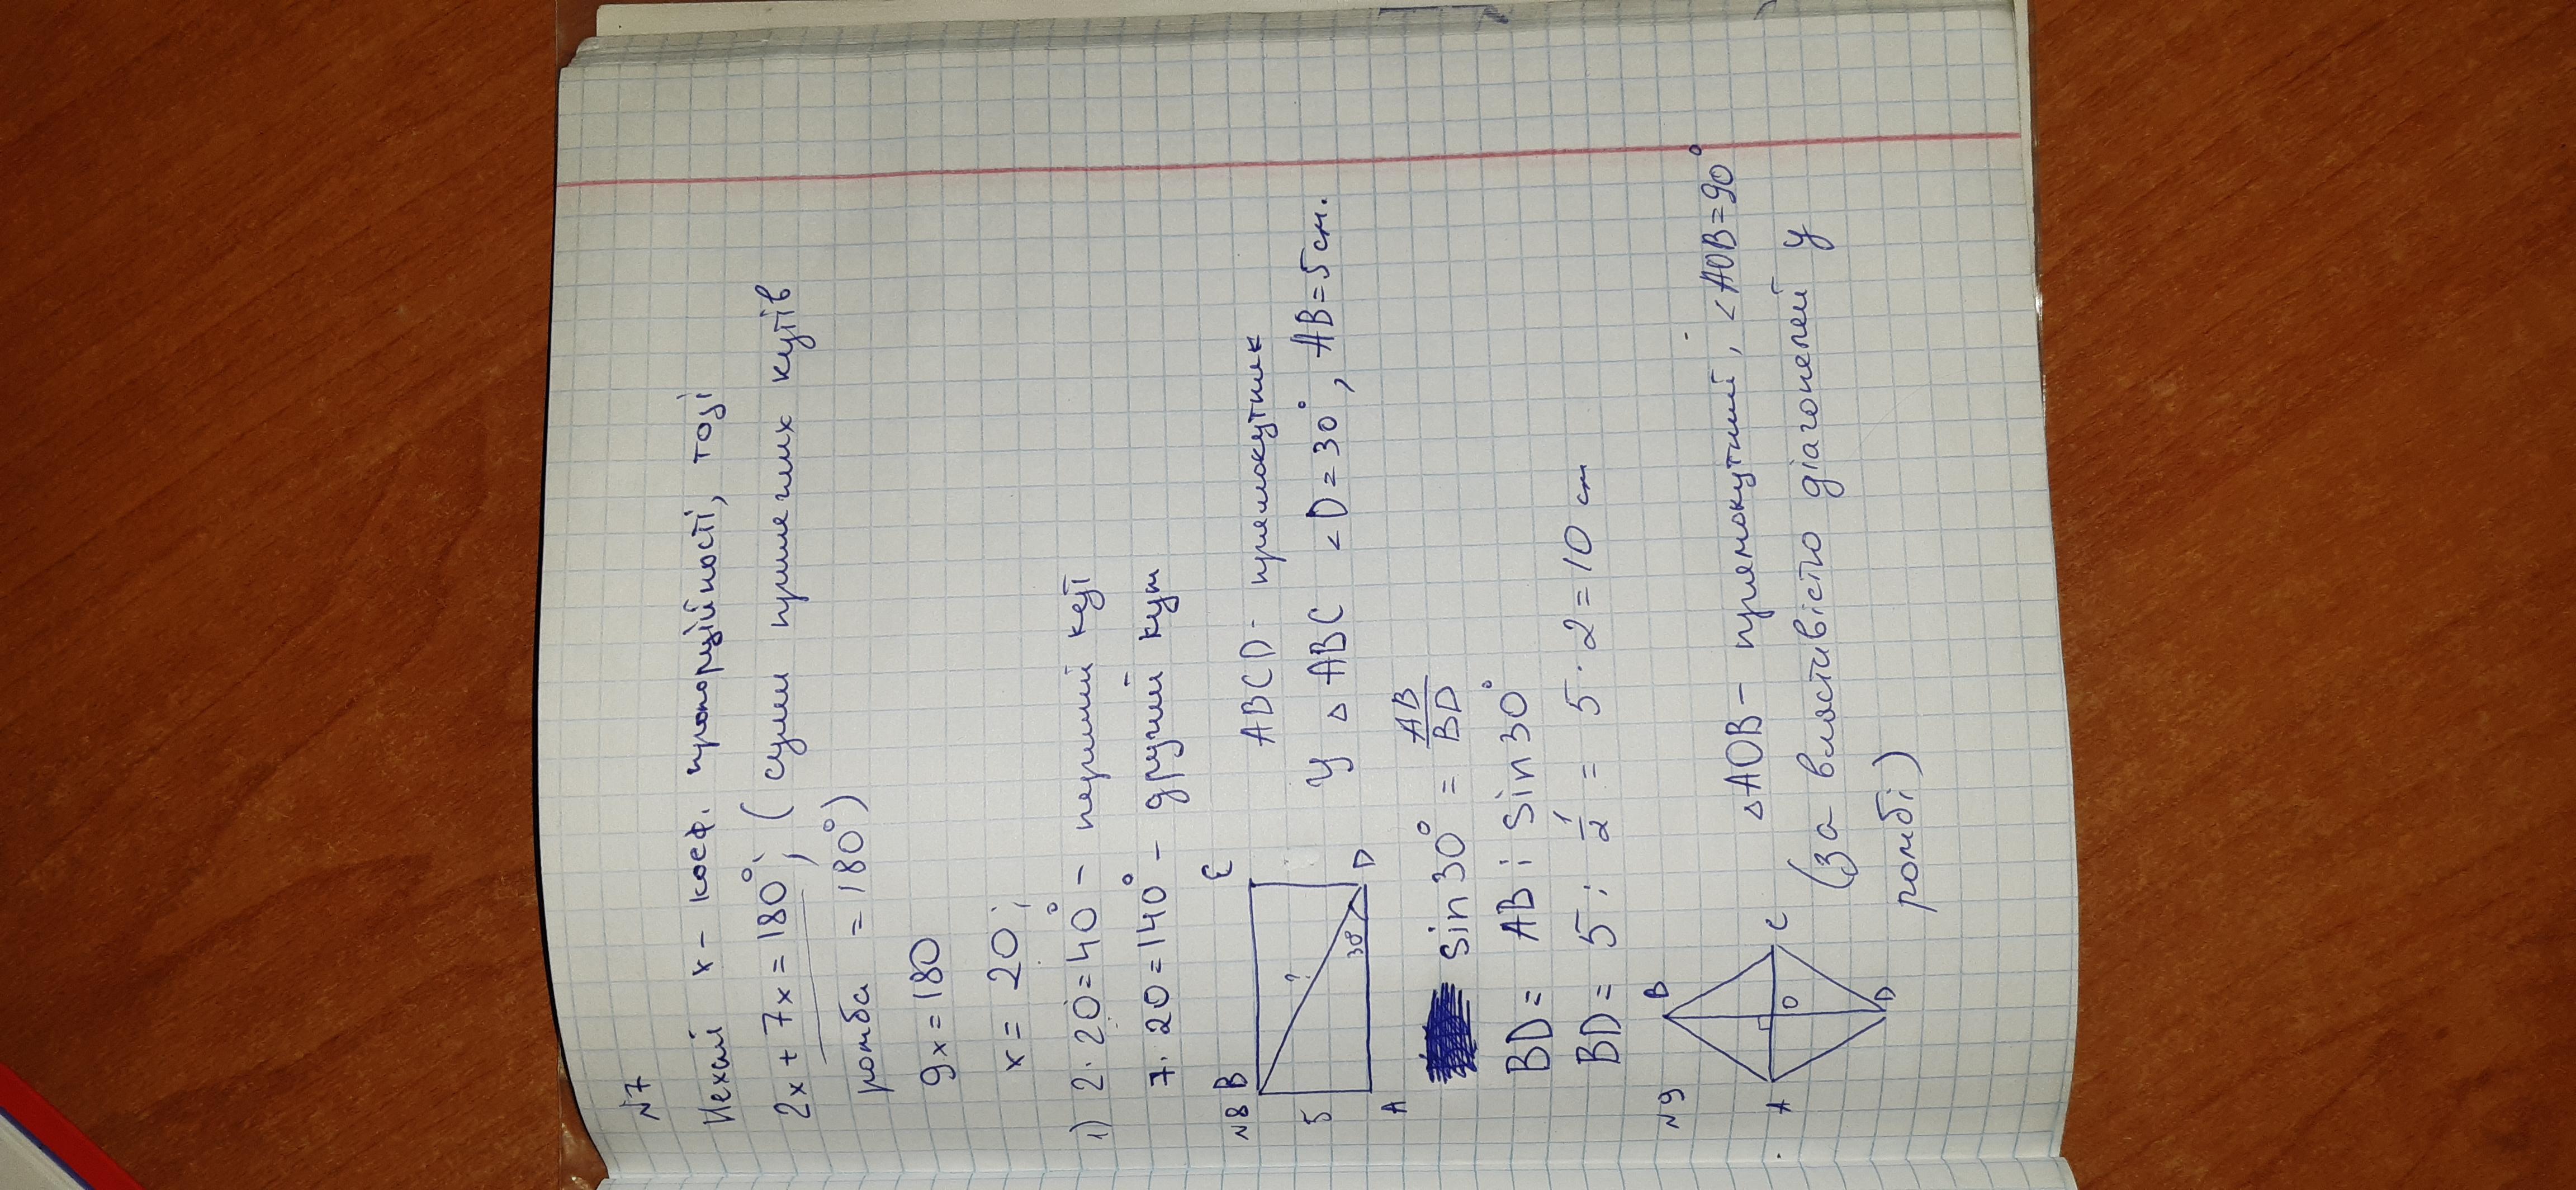 N7
Нехай х - коеф. пропорційності, тоді
2x + 7x = 180°; (суми прилеглих кутів
ромба = 180°)
9x = 180
x = 20;
1) 2·20 = 40° - перший кут
7·20 = 140° - другий кут
N8
B C
ABCD - прямокутник
5 ? 30°
A D
У △ABC <D = 30°, AB = 5 см.
sin 30° = AB/BD
BD = AB : sin 30°
BD = 5 : 1/2 = 5 · 2 = 10 см
N9
B
A O C
D
△AOB - прямокутний, <AOB = 90°
(за властивістю діагоналей у
ромбі)